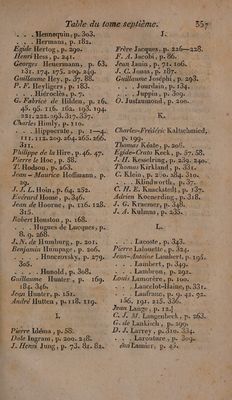 Table du tome septième. 337
. . . Mennequin, p. 303.
. . . Hermans, p. 182.
Egide Hertog, p. 290.
Henri Hess, p. 241.
Georges Heuermann, p. 63.
131. 174. 175. 209. 249.
Guillaume Hey, p. 37. 88.
P. F. Heyligers, p. 183.
. . . Hiéroclès, p. 7.
G. Fabrice de Hilden, p. 16.
45. 95. 116. 162. 193. 194.
221. 222. 293. 317. 337.
Charles Himly, p. 110.
. . . Hippocrate, p. 1—4.
111. 112. 209. 264. 265. 266.
311.
Philippe de la Hire, p. 46. 47.
Pierre le Hoc, p. 58.
T. Hodson, p. 263.
Jean-Maurice Hoffmann, p.
29.
J. J. L. Hoin, p. 64. 252.
Evérard Home, p. 346.
Jean de Hoorne, p. 116. 128.
315.
Robert Houston, p. 168.
. . . Hugues de Lucques, p.
8. 9. 268.
J. N. de Humburg, p. 201.
Benjamin Humpage, p. 206.
. . . Hunczovsky, p. 279.
305.
. . . Hunold, p. 308.
Guillaume Hunter, p. 169.
184. 346.
Jean Hunter, p. 151.
André Hutten, p. 118. 119.
I.
Pierre Idéma, p. 58.
Dale Ingram, p. 200. 248.
J. Henri Jung, p. 73. 81. 82.
J.
Frère Jacques, p. 226—228.
F. A. Jacobi, p. 86.
Jean Janin, p. 71. 106.
J. G. Jonas, p. 187.
Guillaume Josephi, p. 293.
. . . Jourdain, p. 134.
. . . Juppin, p. 309.
O. Justamond, p. 200.
K.
Charles-Frédéric Kaltschmied,
p. 199.
Thomas Keate, p. 206.
Egide-Crato Keck, p. 57. 58.
J. H. Kesselring, p. 239. 240.
Thomas Kirkland, p. 314.
C. Klein, p. 230. 284. 310.
. . . Klindworth, p. 37.
C. H. E. Knackstedt, p. 137.
Adrien Koenerding, p. 318.
J. G. Kruenetz, p. 348.
J. A. Kulmus, p. 235.
L.
. . . Lacoste, p. 343.
Pierre Lalouette, p. 324.
Jean-Antoine Lambert, p. 195.
. . . Lambert, p. 349.
. . . Lambron, p. 291.
Louis Lamorère, p. 100.
. . . Lancelot-Haine, p. 331.
. . . Lanfranc, p. 9. 42. 92.
156. 191. 215. 336.
Jean Lange, p. 12.
C. J. M. Langenbeck, p. 263.
G. de Lankisch, p. 299.
D. J. Larrey, p. 310. 334.
. . . Laroudure, p. 309.
Lasnier, p. 42.